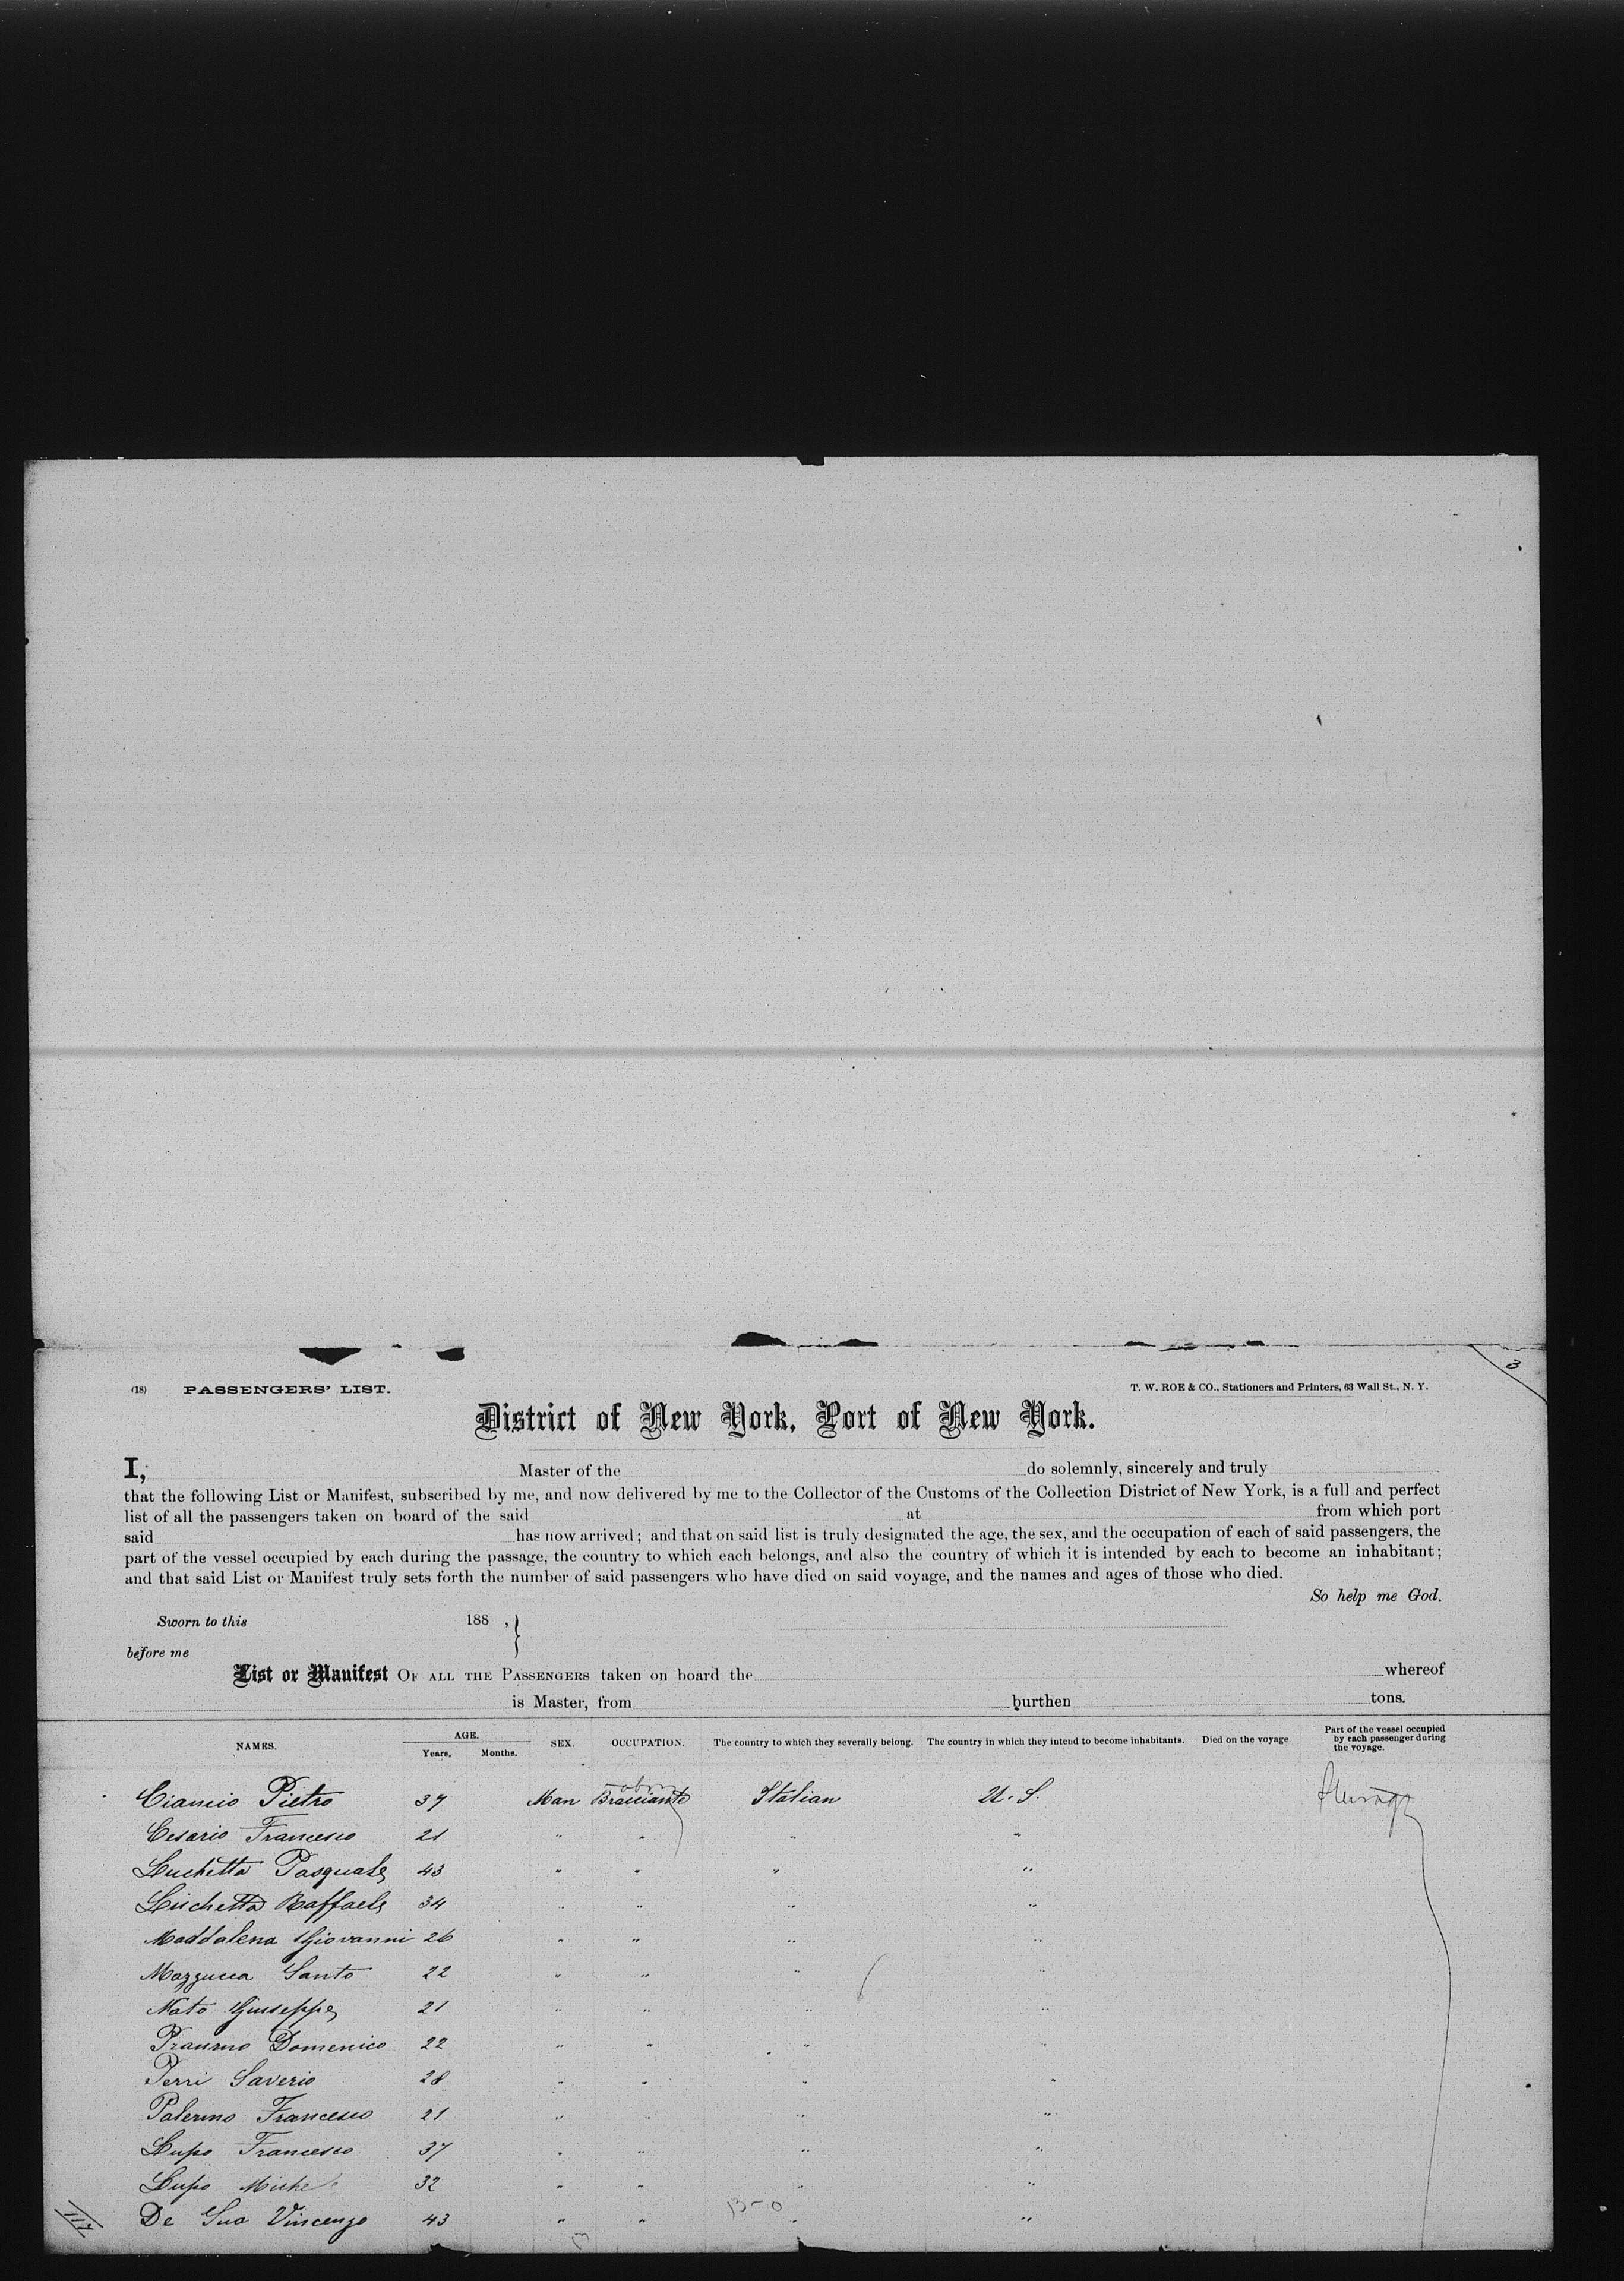 3
(18) PASSENGERS' LIST. T. W. ROE & CO., Stationers and Printers, 63 Wall St., N. Y.
District of New York, Port of New York.
I, Master of the do solemnly, sincerely and truly
that the following List or Manifest, subscribed by me, and now delivered by me to the Collector of the Customs of the Collection District of New York, is a full and perfect
list of all the passengers taken on board of the said at from which port
said has now arrived; and that on said list is truly designated the age, the sex, and the occupation of each of said passengers, the
part of the vessel occupied by each during the passage, the country to which each belongs, and also the country of which it is intended by each to become an inhabitant;
and that said List or Manifest truly sets forth the number of said passengers who have died on said voyage, and the names and ages of those who died.
So help me God.
Sworn to this 188 , }
before me
List or Manifest OF ALL THE PASSENGERS taken on board the whereof
is Master, from burthen tons.
NAMES. AGE. Years. Months. SEX. OCCUPATION. The country to which they severally belong. The country in which they intend to become inhabitants. Died on the voyage Part of the vessel occupied by each passenger during the voyage.
Ciancio Pietro 37 Man Bracciante Italian U. S. Steerage
Cesario Francesco 21 " " " "
Luchetta Pasquale 43 " " " "
Luchetta Raffaele 34 " " " "
Maddalena Giovanni 26 " " " "
Mazzucca Santo 22 " " " "
Nato Giuseppe 21 " " " "
Domenico 22 " " " "
Perri Saverio 28 " " " "
Palermo Francesco 21 " " " "
Lupo Francesco 37 " " " "
Lupo Michele 32 " " " "
De Sua Vincenzo 43 " " " "
13-0